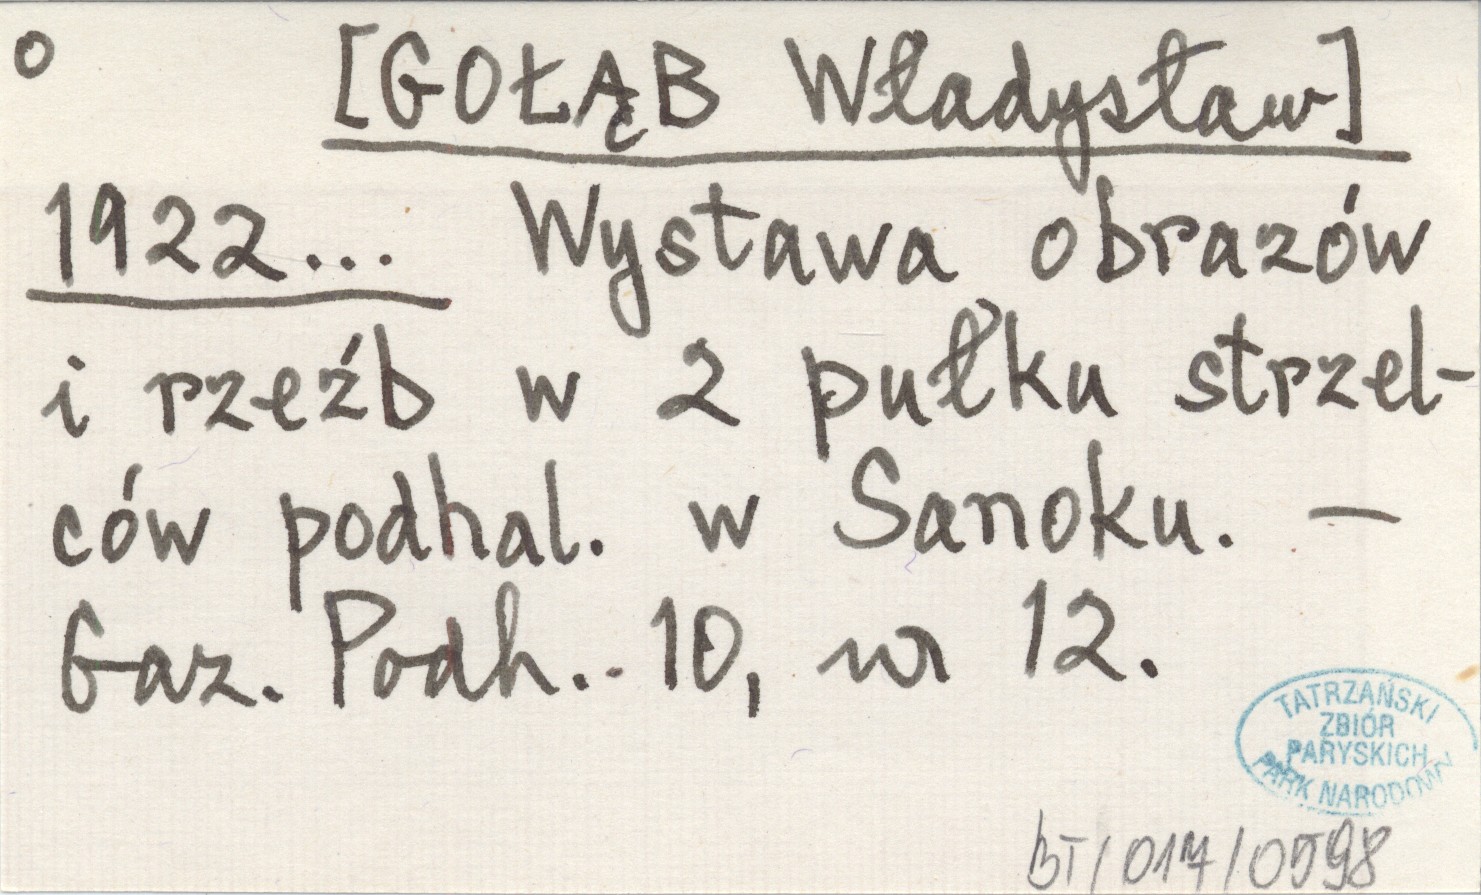 o [GOŁĄB Władysław]
1922... Wystawa obrazów
i rzeźb w 2 pułku strzel-
ców podhal. w Sanoku. —
Gaz. Podh.. 10, nr 12.
TATRZAŃSKI
ZBIÓR
PARYSKICH
PARK NARODOWY
BT/017/0598